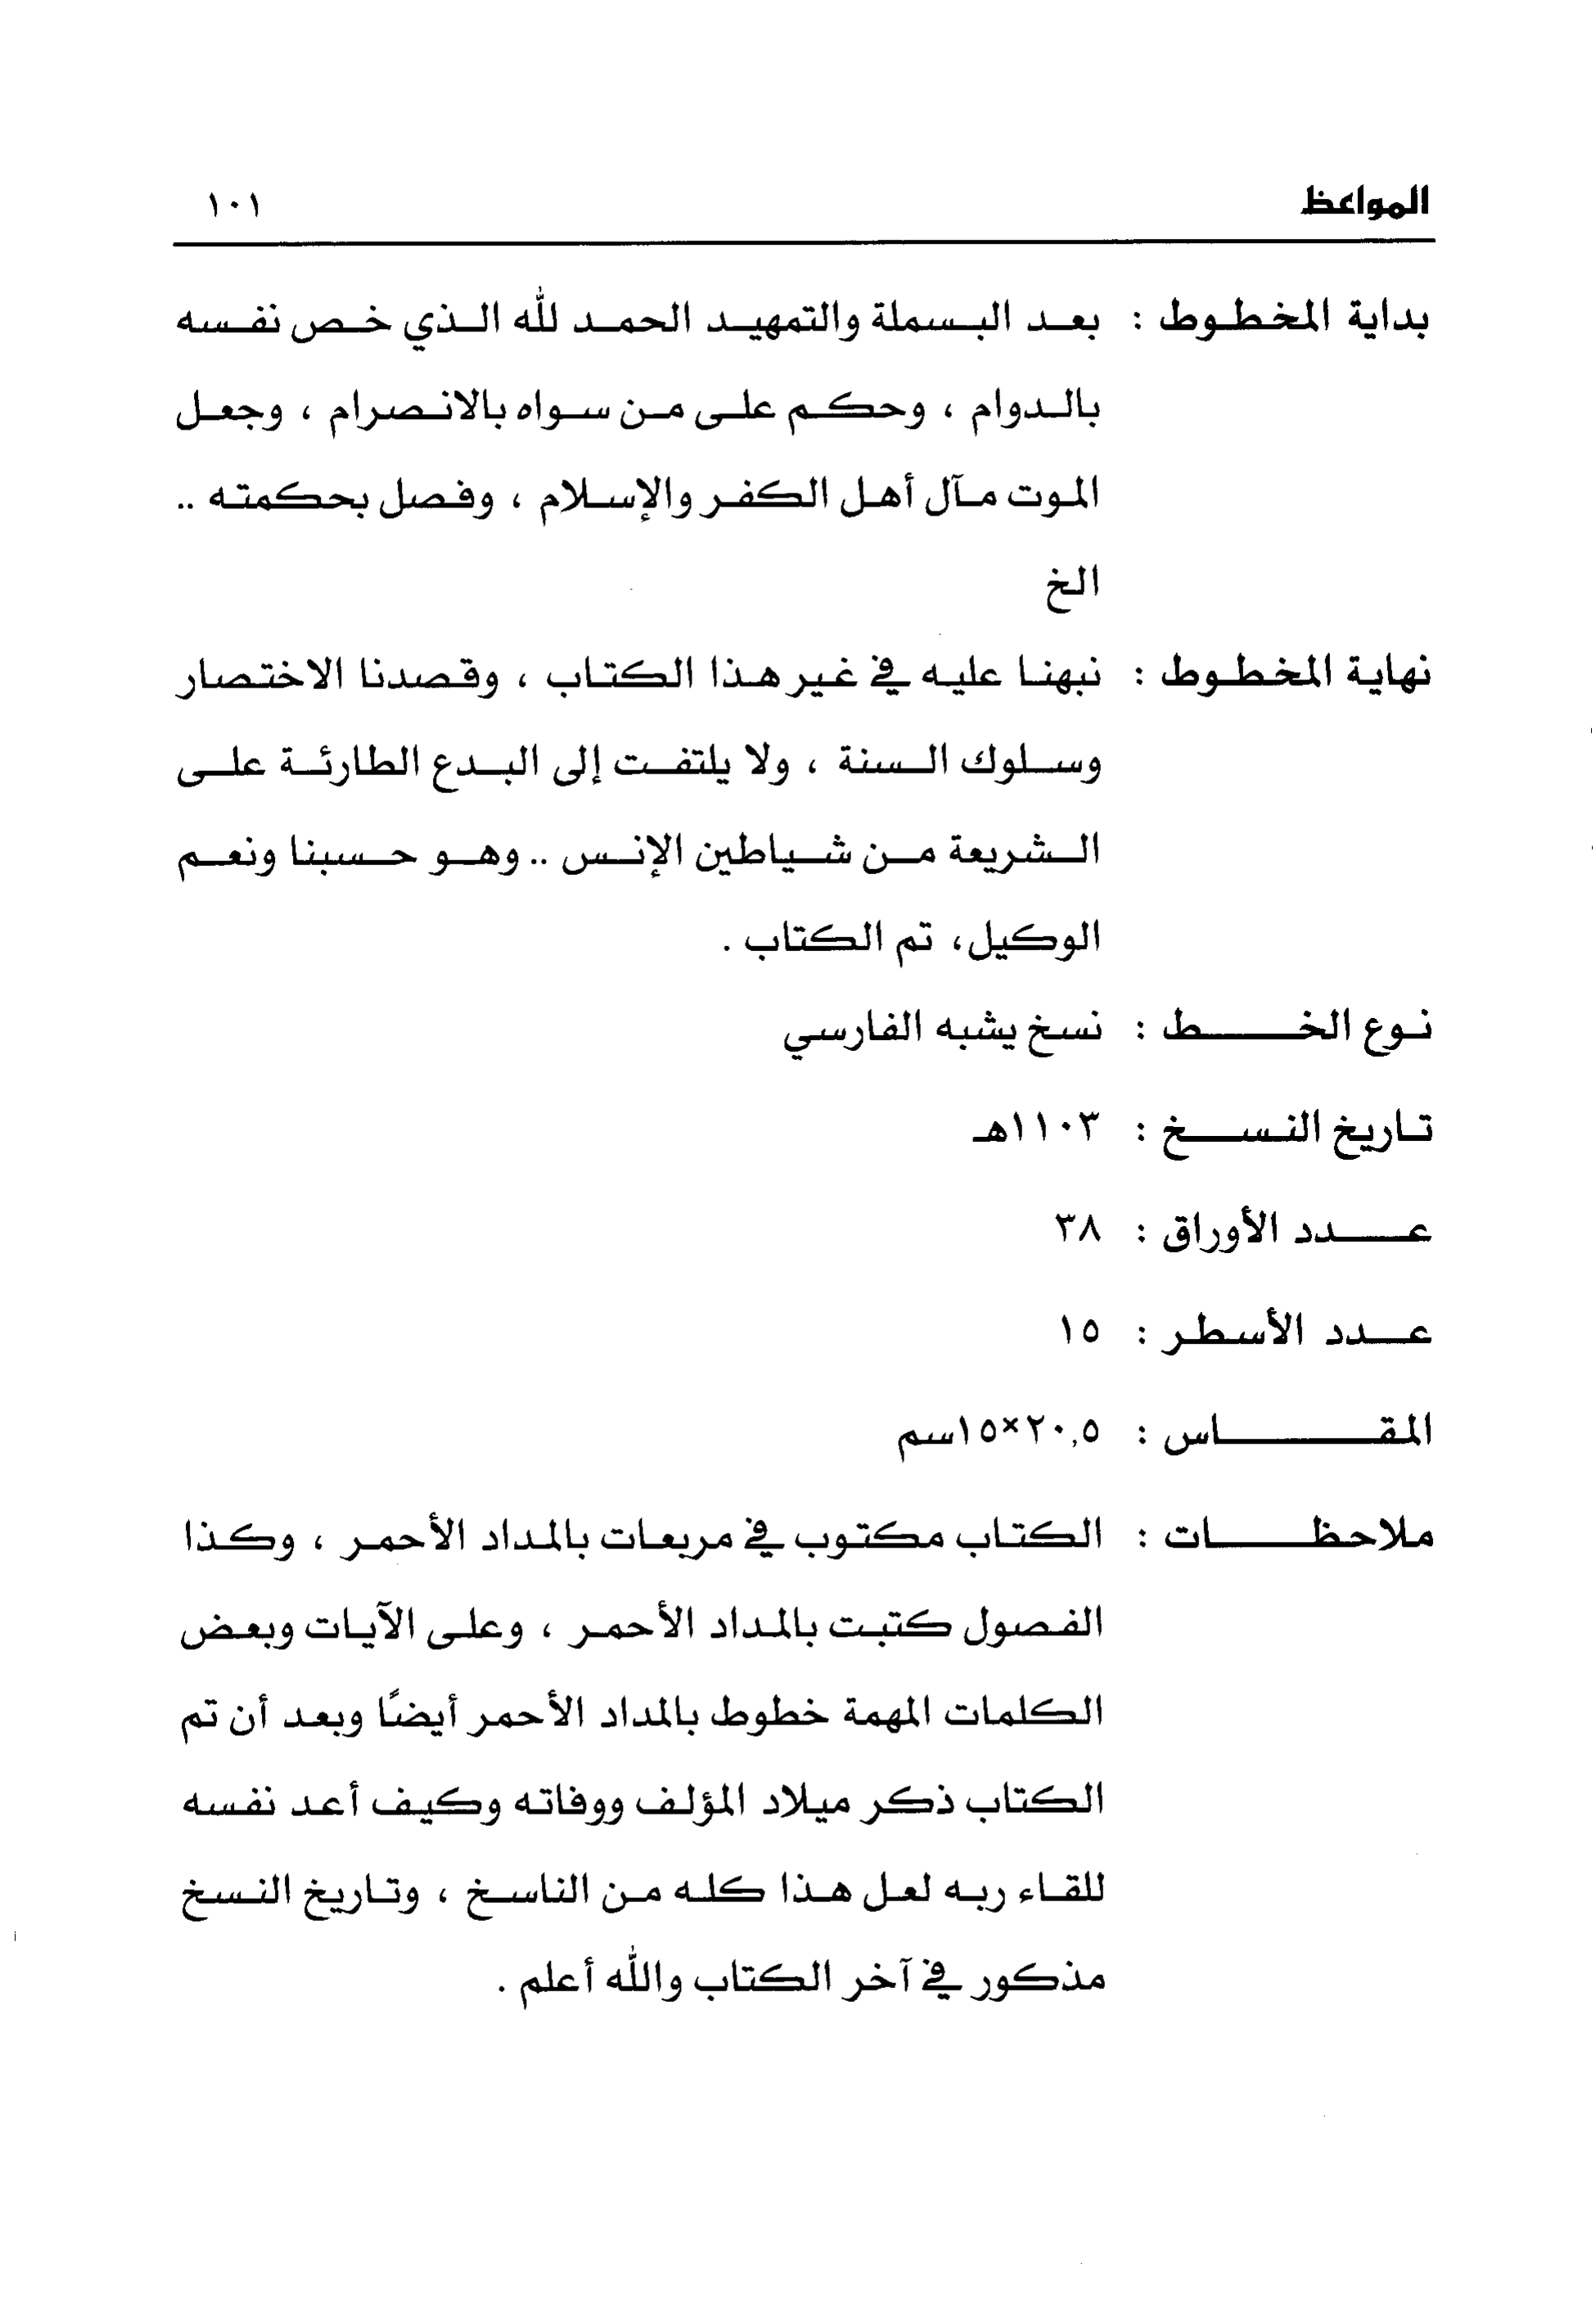 المواعظ ١٠١
بداية المخطوط : بعد البسملة والتمهيد الحمد لله الذي خص نفسه
بالدوام ، وحكم على من سواه بالانصرام ، وجعل
الموت مآل أهل الكفر والإسلام ، وفصل بحكمته ..
الخ
نهاية المخطوط : نبهنا عليه في غير هذا الكتاب ، وقصدنا الاختصار
وسلوك السنة ، ولا يلتفت إلى البدع الطارئة على
الشريعة من شياطين الإنس .. وهو حسبنا ونعم
الوكيل، تم الكتاب .
نوع الخط : نسخ يشبه الفارسي
تاريخ النسخ : ١١٠٣هـ
عدد الأوراق : ٣٨
عدد الأسطر : ١٥
المقاس : ٢٠,٥×١٥سم
ملاحظات : الكتاب مكتوب في مربعات بالمداد الأحمر ، وكذا
الفصول كتبت بالمداد الأحمر ، وعلى الآيات وبعض
الكلمات المهمة خطوط بالمداد الأحمر أيضًا وبعد أن تم
الكتاب ذكر ميلاد المؤلف ووفاته وكيف أعد نفسه
للقاء ربه لعل هذا كله من الناسخ ، وتاريخ النسخ
مذكور في آخر الكتاب والله أعلم .